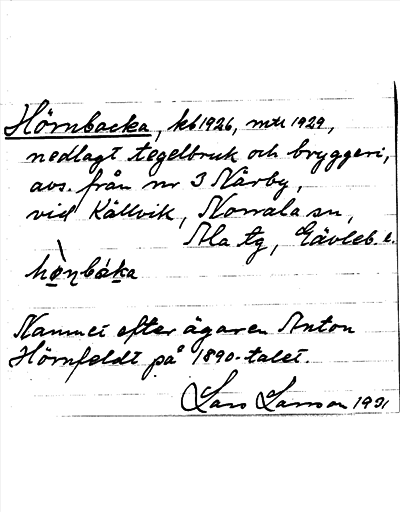 Hörnbacka, kb 1926, mtl 1929,
nedlagt tegelbruk och bryggeri,
avs. från nr 3 Närby,
vid Källvik, Norrala sn,
Ala tg, Gävleb. l.
hö̀ṇbáka
Namnet efter ägaren Anton
Hörnfeldt på 1890-talet.
Lars Larsson 1931